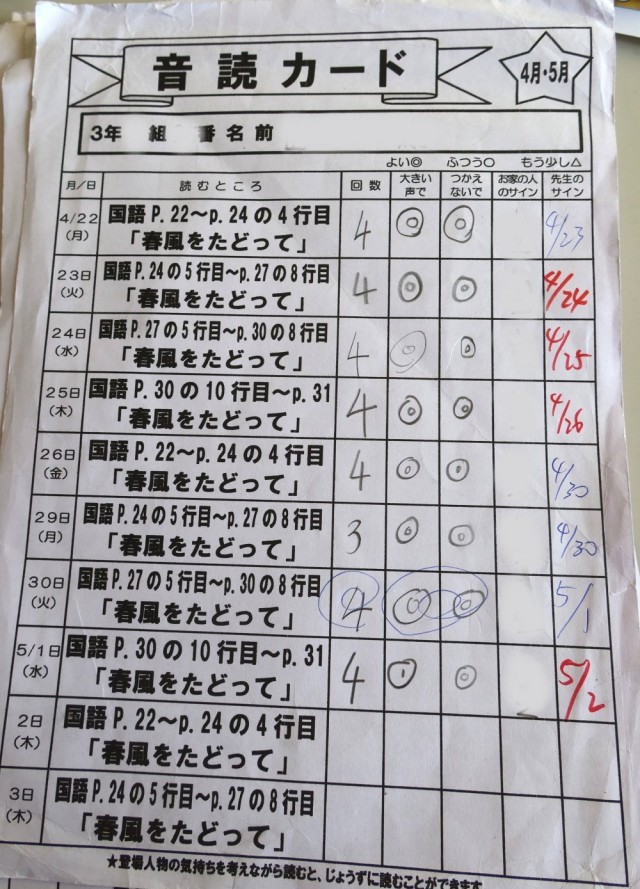 音読カード
4月・5月
3年 組 番 名前
よい◎ ふつう〇 もう少し△
月/日 読むところ 回数 大きい声で つかえないで お家の人のサイン 先生のサイン
4/22(月) 国語 P. 22〜p. 24の4行目「春風をたどって」 4 ◎ ◎ 4/23
23日(火) 国語 P. 24の5行目〜p. 27の8行目「春風をたどって」 4 ◎ ◎ 4/24
24日(水) 国語 P. 27の5行目〜p. 30の8行目「春風をたどって」 4 ◎ ◎ 4/25
25日(木) 国語 P. 30の10行目〜p. 31「春風をたどって」 4 ◎ ◎ 4/26
26日(金) 国語 P. 22〜p. 24の4行目「春風をたどって」 4 ◎ ◎ 4/30
29日(月) 国語 P. 24の5行目〜p. 27の8行目「春風をたどって」 3 ◎ ◎ 4/30
30日(火) 国語 P. 27の5行目〜p. 30の8行目「春風をたどって」 4 ◎ ◎ 5/1
5/1日(水) 国語 P. 30の10行目〜p. 31「春風をたどって」 4 ◎ ◎ 5/2
2日(木) 国語 P. 22〜p. 24の4行目「春風をたどって」
3日(木) 国語 P. 24の5行目〜p. 27の8行目「春風をたどって」
★登場人物の気持ちを考えながら読むと、じょうずに読むことができます